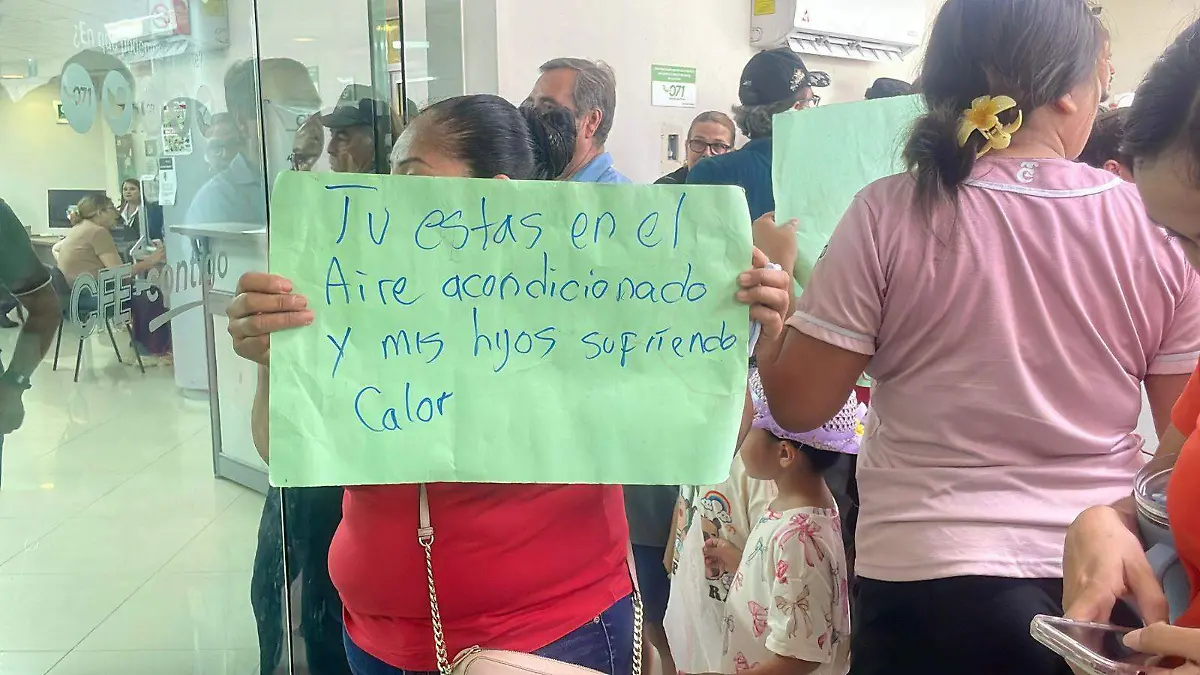 Tu estas en el
Aire acondicionado
y mis hijos sufriendo
Calor
CFE contigo
071
071